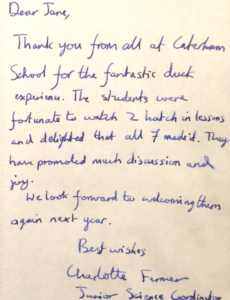 Dear Jane,
Thank you from all at Caterham
School for the fantastic duck
experience. The students were
fortunate to watch 2 hatch in lessons
and delighted that all 7 made it. They
have promoted much discussion and
joy.
We look forward to welcoming them
again next year.
Best wishes
Charlotte Farmer
Junior Science Coordinator